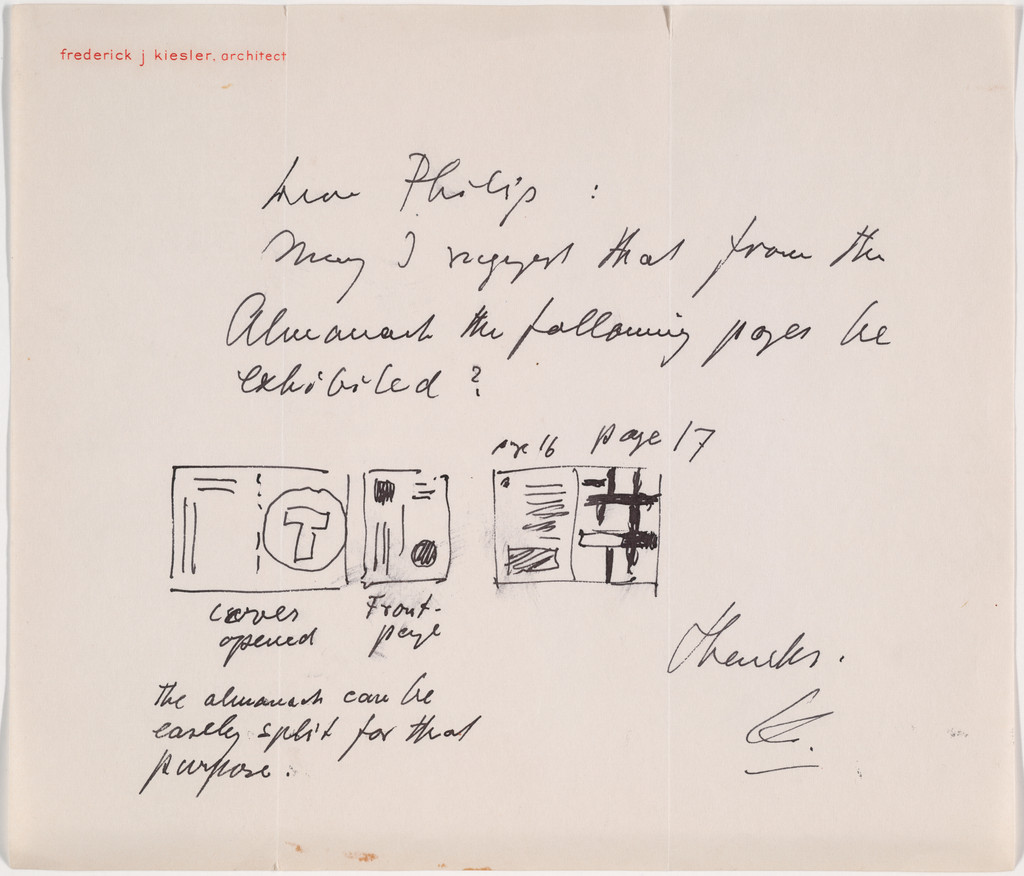 frederick j kiesler, architect
Dear Philip :
May I suggest that from the
Almanach the following pages be
exhibited ?
page 16 page 17
T
cover
opened
Front-
page
Thanks.
K.
the almanach can be
easely split for that
purpose.